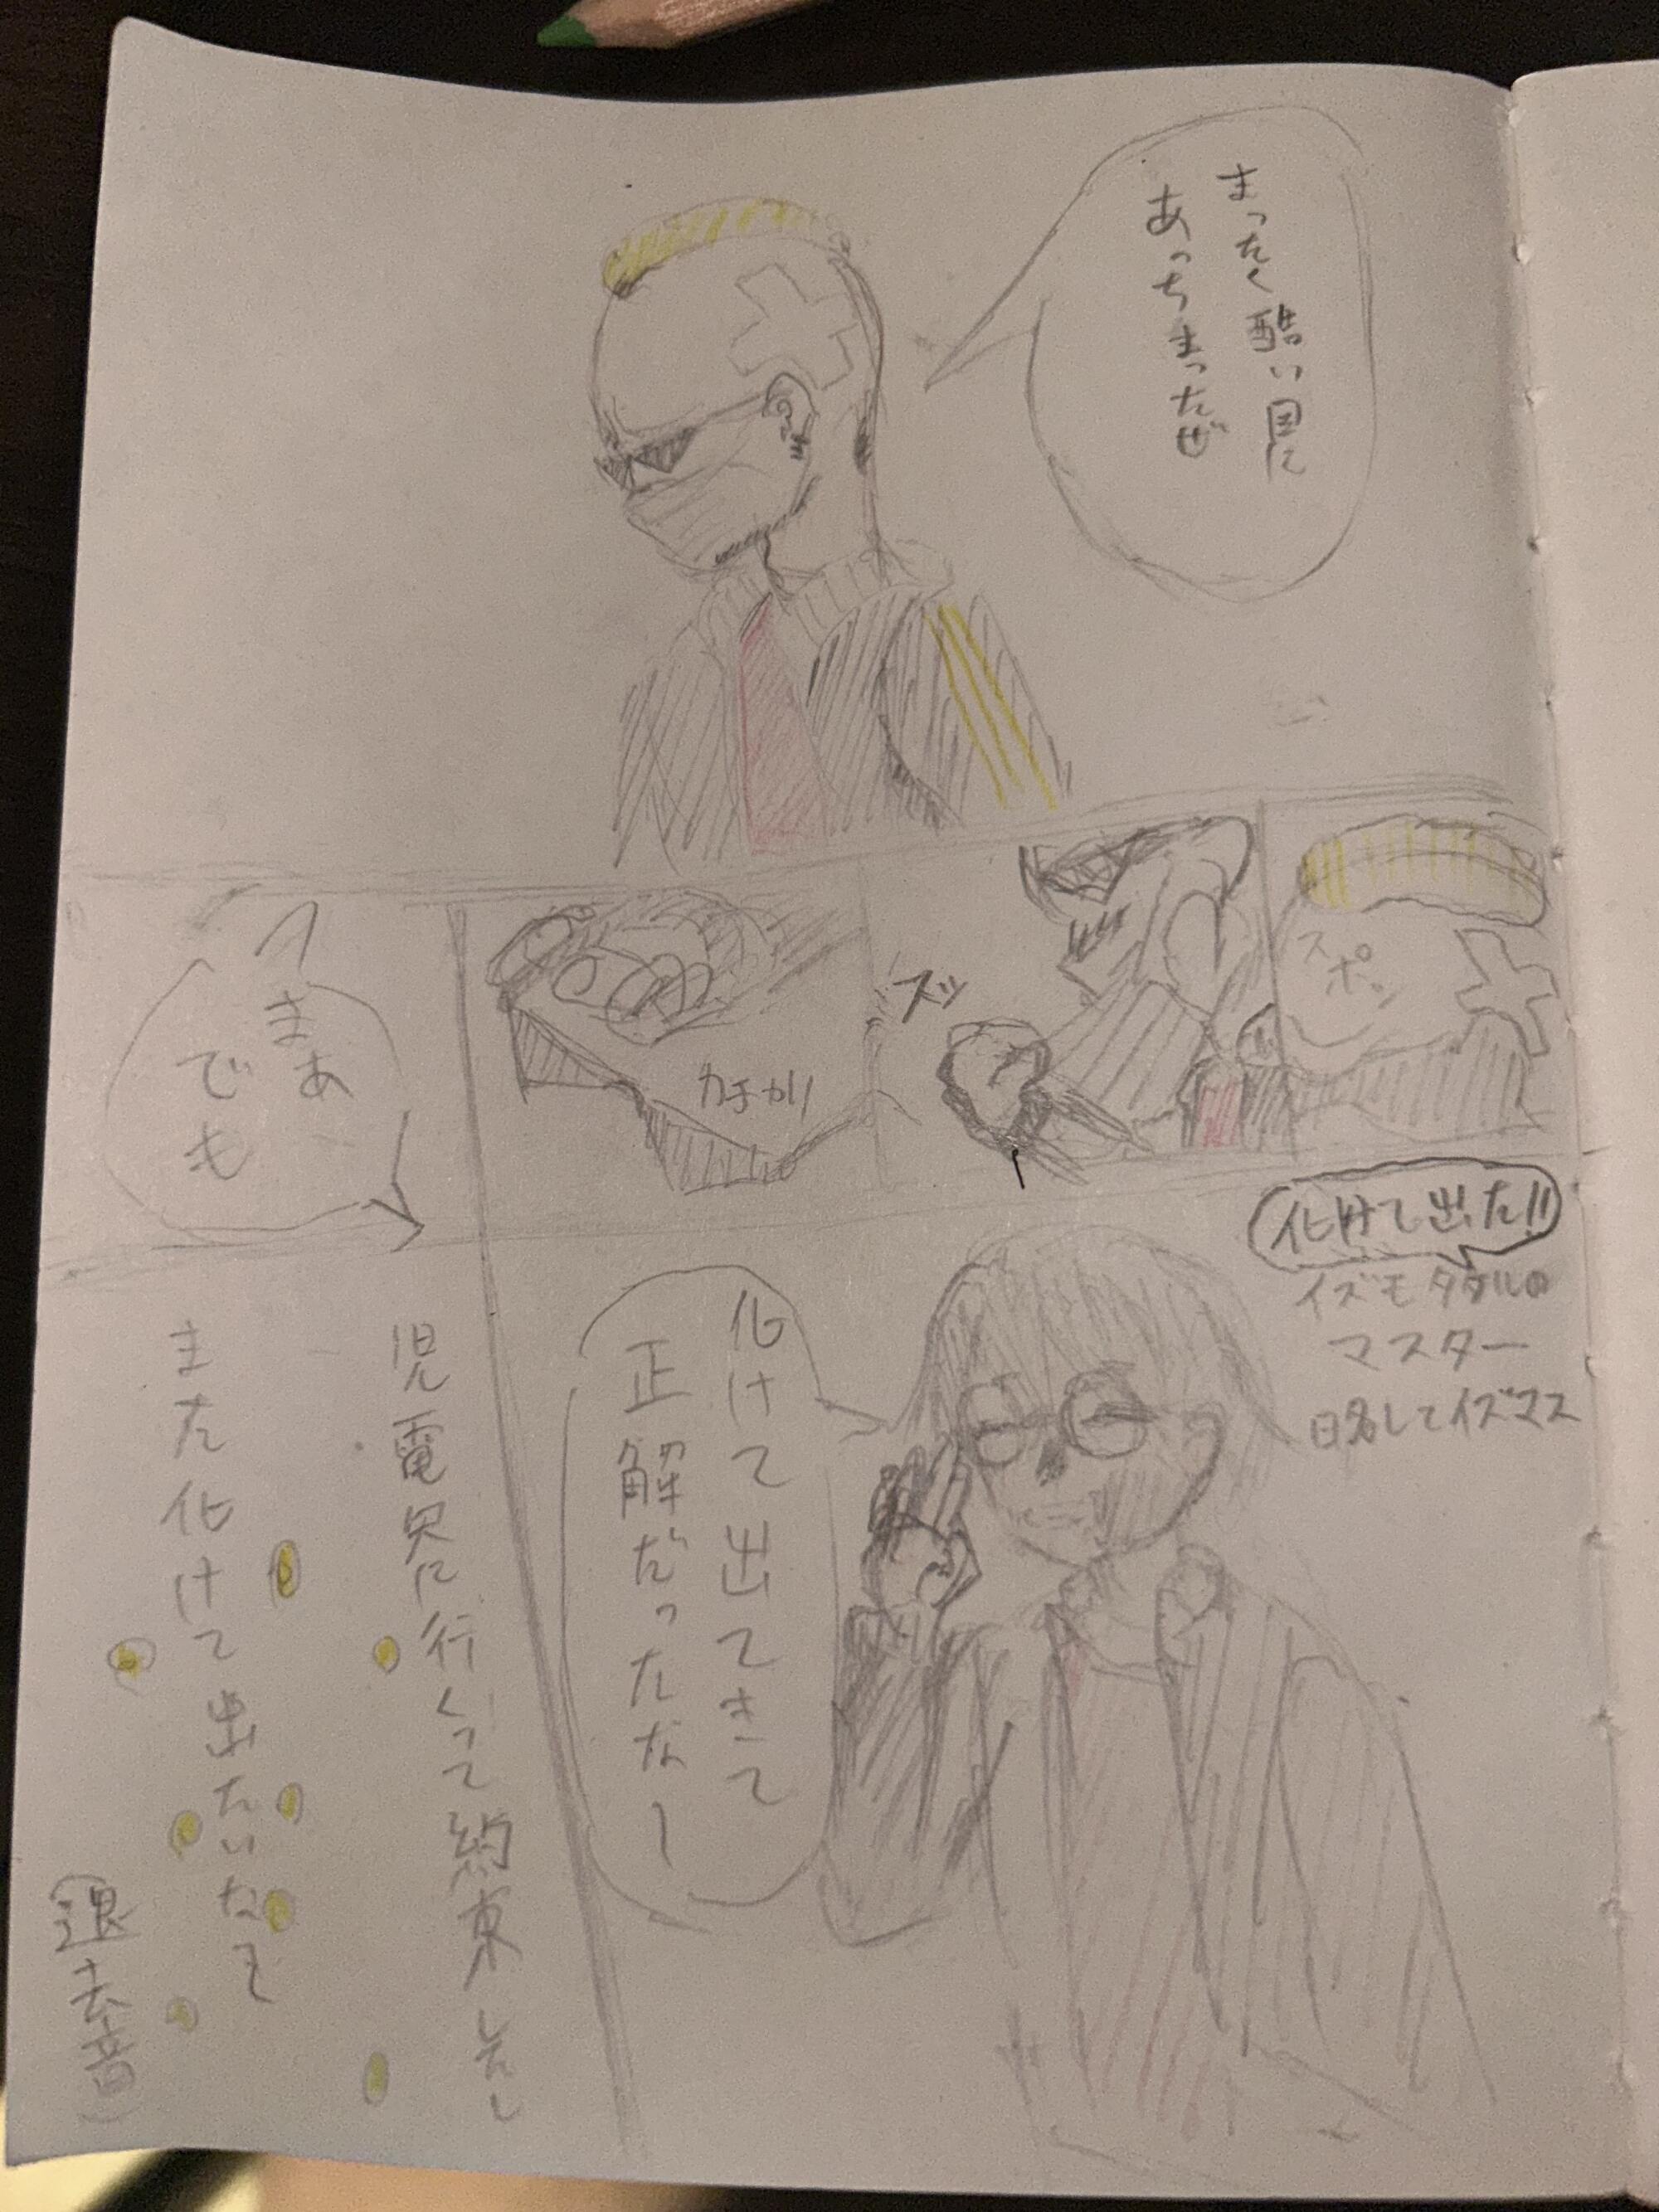 まったく酷い目に
あっちまったぜ
スポッ
スッ
カチャリ
まぁ
でも
化けて出た!!
イズモタタルの
マスター
略してイズマス
化けて出てきて
正解だったなー
児電界に行くって約束したし
また化けて出たいなぁ
(退去音)